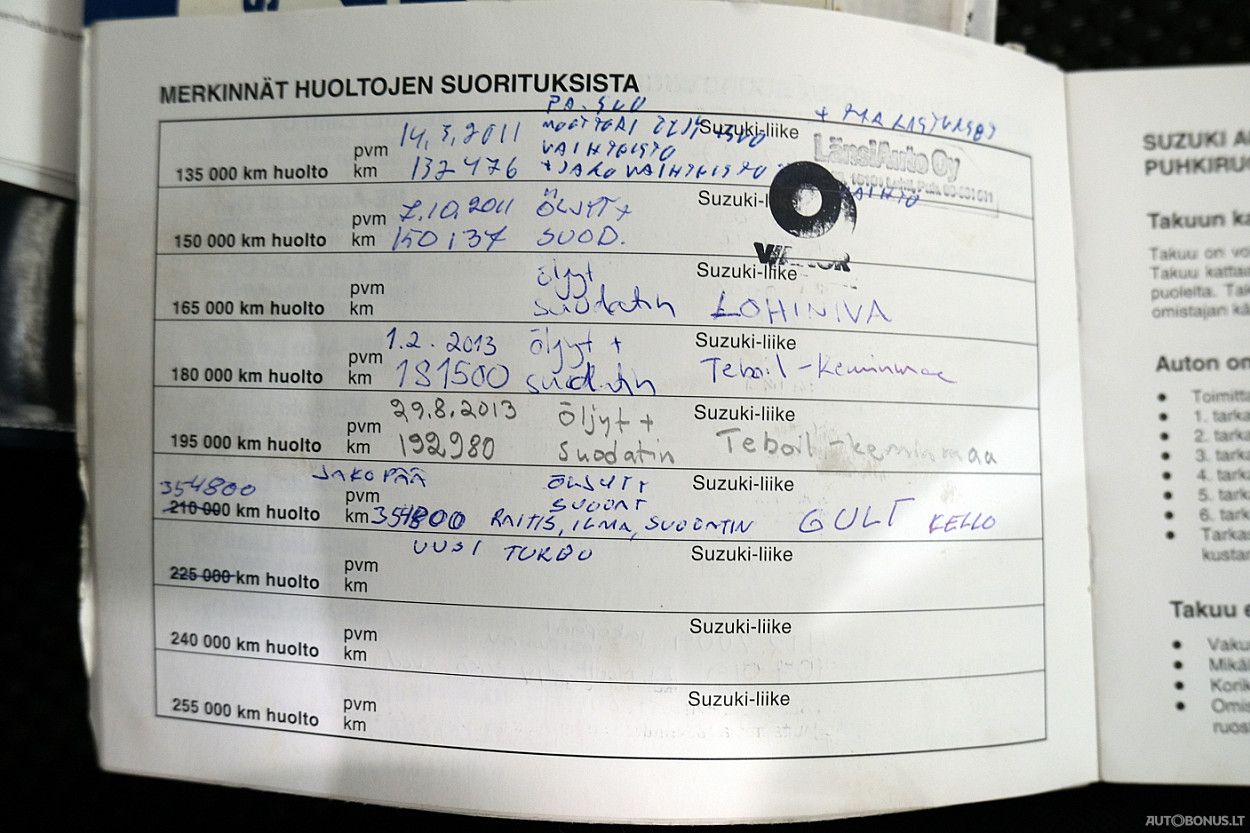 MERKINNÄT HUOLTOJEN SUORITUKSISTA
135 000 km huolto
pvm 14.3.2011
km 132476
PA. SUO
MOOTTORI ÖLJY +
VAIHTEISTO
+ JAKOVAIHTEISTO
Suzuki-liike
LänsiAuto Oy
150 000 km huolto
pvm 7.10.2011
km 150137
ÖLJYT +
SUOD.
Suzuki-l
165 000 km huolto
pvm
km
öljyt
suodatin
Suzuki-liike
LOHINIVA
180 000 km huolto
pvm 1.2.2013
km 181500
öljyt +
suodatin
Suzuki-liike
Teboil-Keminmaa
195 000 km huolto
pvm 29.8.2013
km 192980
öljyt +
suodatin
Suzuki-liike
Teboil-keminmaa
354800
210 000 km huolto
JAKOPÄÄ
pvm
km 354800
ÖLJYT +
SUODAT
RAITIS, ILMA, SUODATIN
Suzuki-liike
GULF KELLO
225 000 km huolto
UUSI TURBO
pvm
km
Suzuki-liike
240 000 km huolto
pvm
km
Suzuki-liike
255 000 km huolto
pvm
km
Suzuki-liike
SUZUKI
PUHKIRUO
Takuun ka
Takuu on vo
Takuu kattaa
puolelta. Tak
omistajan kä
Auton om
Toimitta
1. tarka
2. tarka
3. tarka
4. tarka
5. tarka
6. tarka
Tarkas
kustan
Takuu e
Vaku
Mikäl
Korik
Omis
ruos
AUTOBONUS.LT